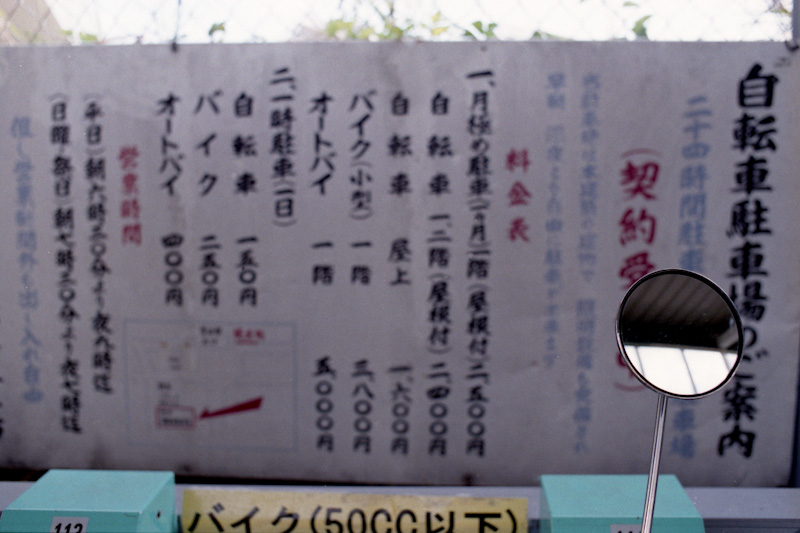 自転車駐車場のご案内
二十四時間駐車
車場
(契約受
料金表
一、月極め駐車(一ヵ月)一階(屋根付)二、五〇〇円
自転車一、二階(屋根付)二、四〇〇円
自転車 屋上 一、六〇〇円
バイク(小型) 一階 三、八〇〇円
オートバイ 一階 五、〇〇〇円
二、一時駐車(一日)
自転車 一五〇円
バイク 二五〇円
オートバイ 四〇〇円
営業時間
(平日)朝六時三〇分より夜八時迄
(日曜・祭日)朝七時三〇分より夜七時迄
但し営業時間外の出し入れ自由
バイク(50CC以下)
113